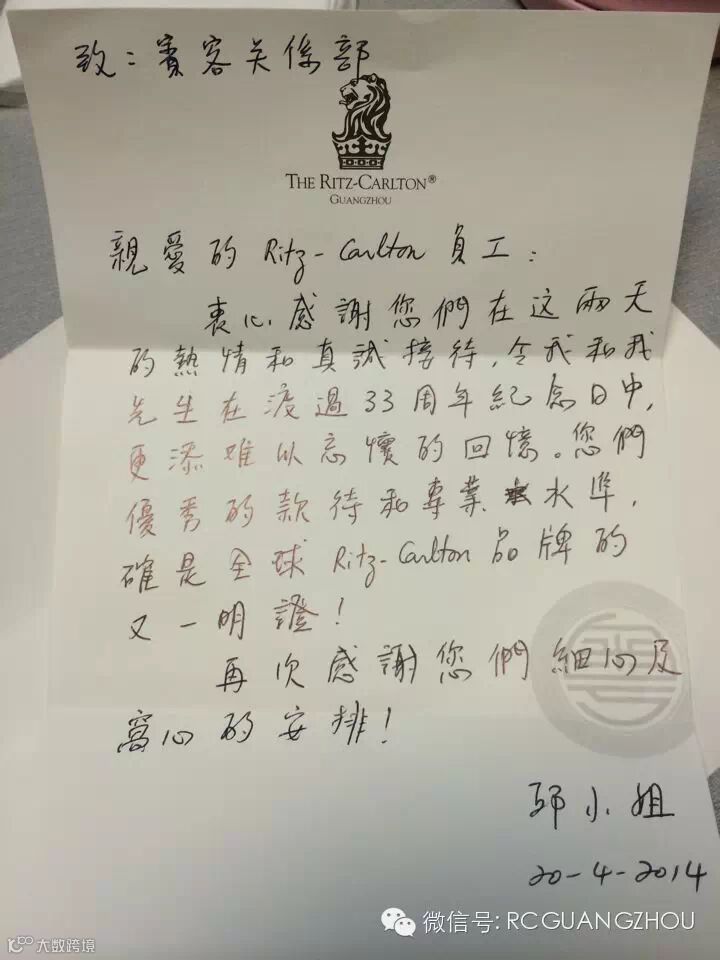 致：賓客关係部
THE RITZ-CARLTON®
GUANGZHOU
親愛的 Ritz-Carlton 員工：
衷心感謝您們在这兩天
的熱情和真誠接待，令我和我
先生在渡過33周年紀念日中，
更添难以忘懷的回憶。您們
優秀的款待和專業水準，
確是全球 Ritz-Carlton 品牌的
又一明證！
再次感謝您們細心及
窩心的安排！
小姐
20-4-2014
微信号: RCGUANGZHOU
大数跨境